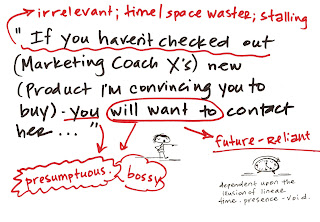 irrelevant; time/space waster; stalling
"If you haven't checked out
(Marketing Coach X's) new
(Product I'm convincing you to
buy) - you will want to contact
her ..."
future-reliant
presumptuous. bossy
dependent upon the
illusion of linear
time. presence - void.